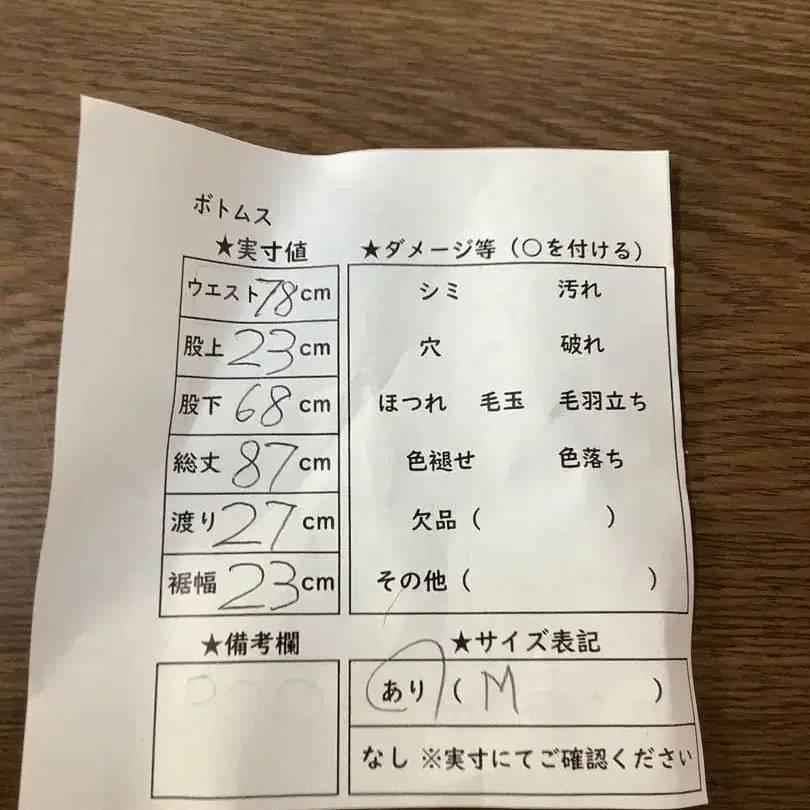 ボトムス
★実寸値
ウエスト78cm
股上23cm
股下68cm
総丈87cm
渡り27cm
裾幅23cm
★ダメージ等(〇を付ける)
シミ 汚れ
穴 破れ
ほつれ 毛玉 毛羽立ち
色褪せ 色落ち
欠品( )
その他( )
★備考欄
★サイズ表記
あり(M )
なし ※実寸にてご確認ください